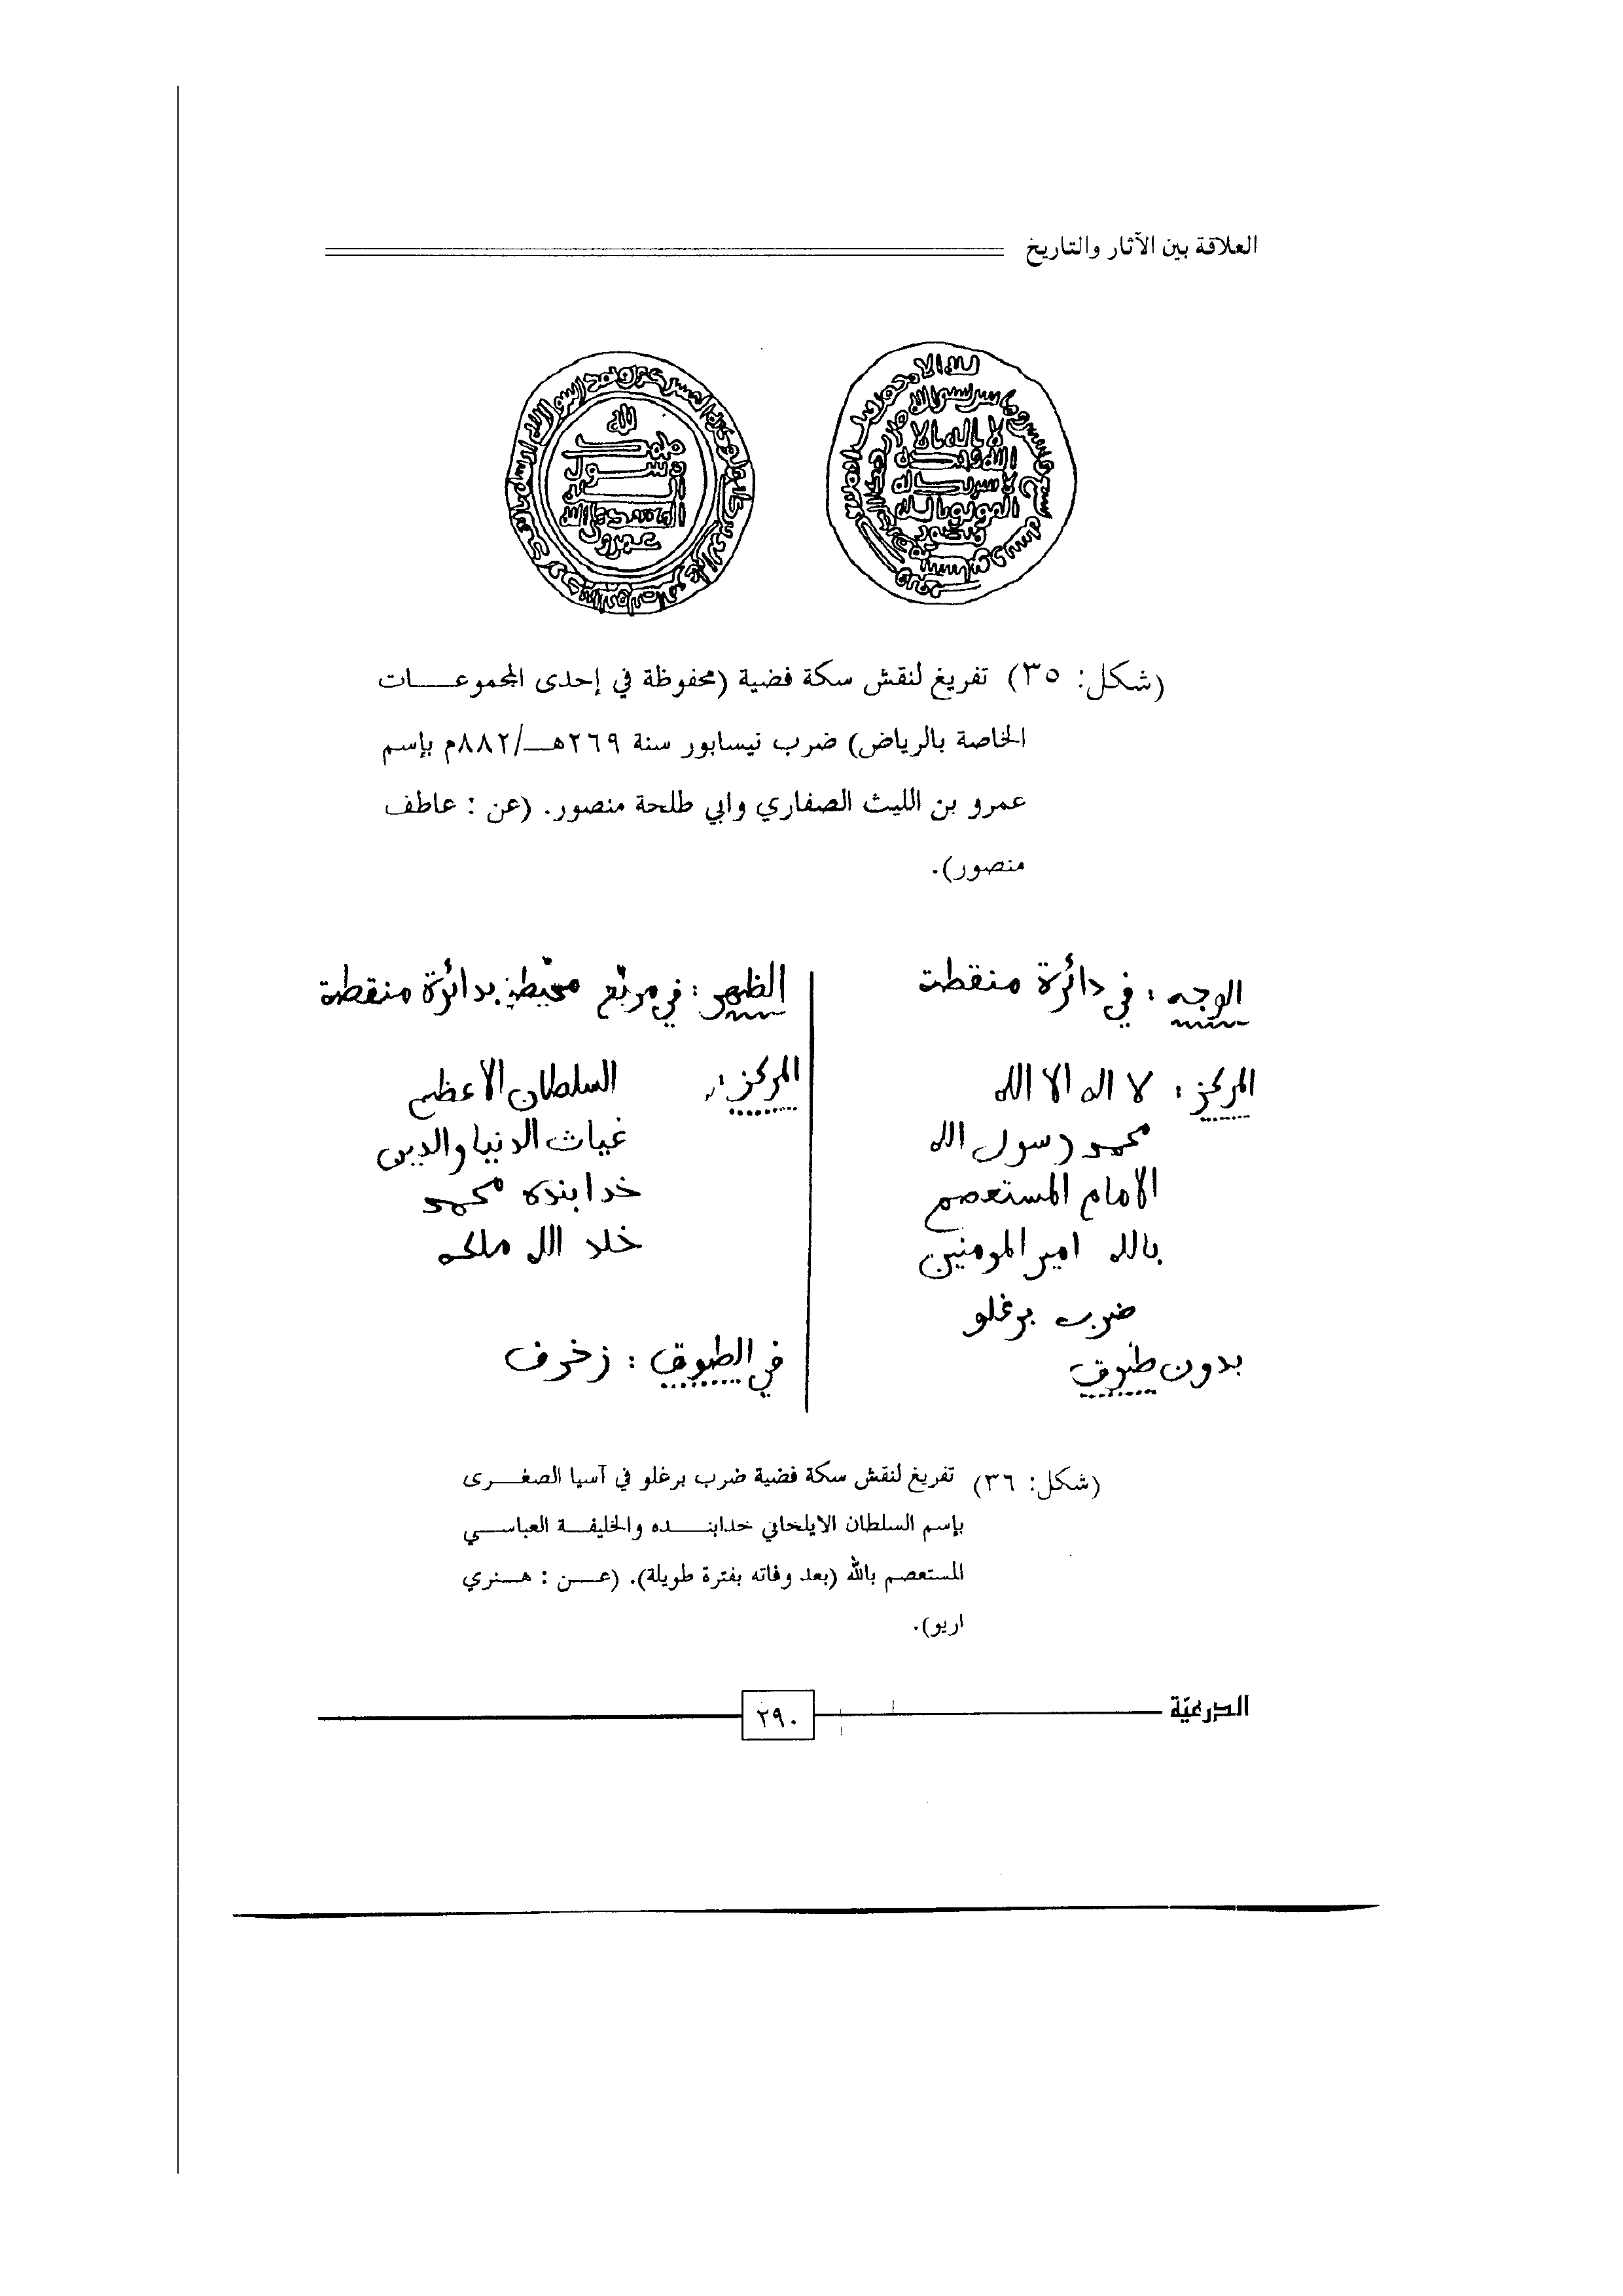 العلاقة بين الآثار والتاريخ
الله
محمد
رسول
الله
المعتمد على الله
عمرو
لله الا
لا اله الا
الله وحده
لا شريك له
الموفق بالله
منصور
(شكل: ٣٥) تفريغ لنقش سكة فضية (محفوظة في إحدى المجموعات
الخاصة بالرياض) ضرب نيسابور سنة ٢٦٩هـ/٨٨٢م بإسم
عمرو بن الليث الصفاري وابي طلحة منصور. (عن : عاطف
منصور).
الوجه : في دائرة منقطة
المركز : لا اله الا الله
محمد رسول الله
الامام المستعصم
بالله امير المومنين
ضرب برغلو
بدون طوق
الظهر : في مربع محيط بدائرة منقطة
المركز : السلطان الاعظم
غياث الدنيا والدين
خدابنده محمد
خلد الله ملكه
في الطوق : زخرف
(شكل: ٣٦) تفريغ لنقش سكة فضية ضرب برغلو في آسيا الصغرى
بإسم السلطان الايلخاني خدابنده والخليفة العباسي
المستعصم بالله (بعد وفاته بفترة طويلة). (عن : هنري
اريو).
الدرعيّة
٢٩٠